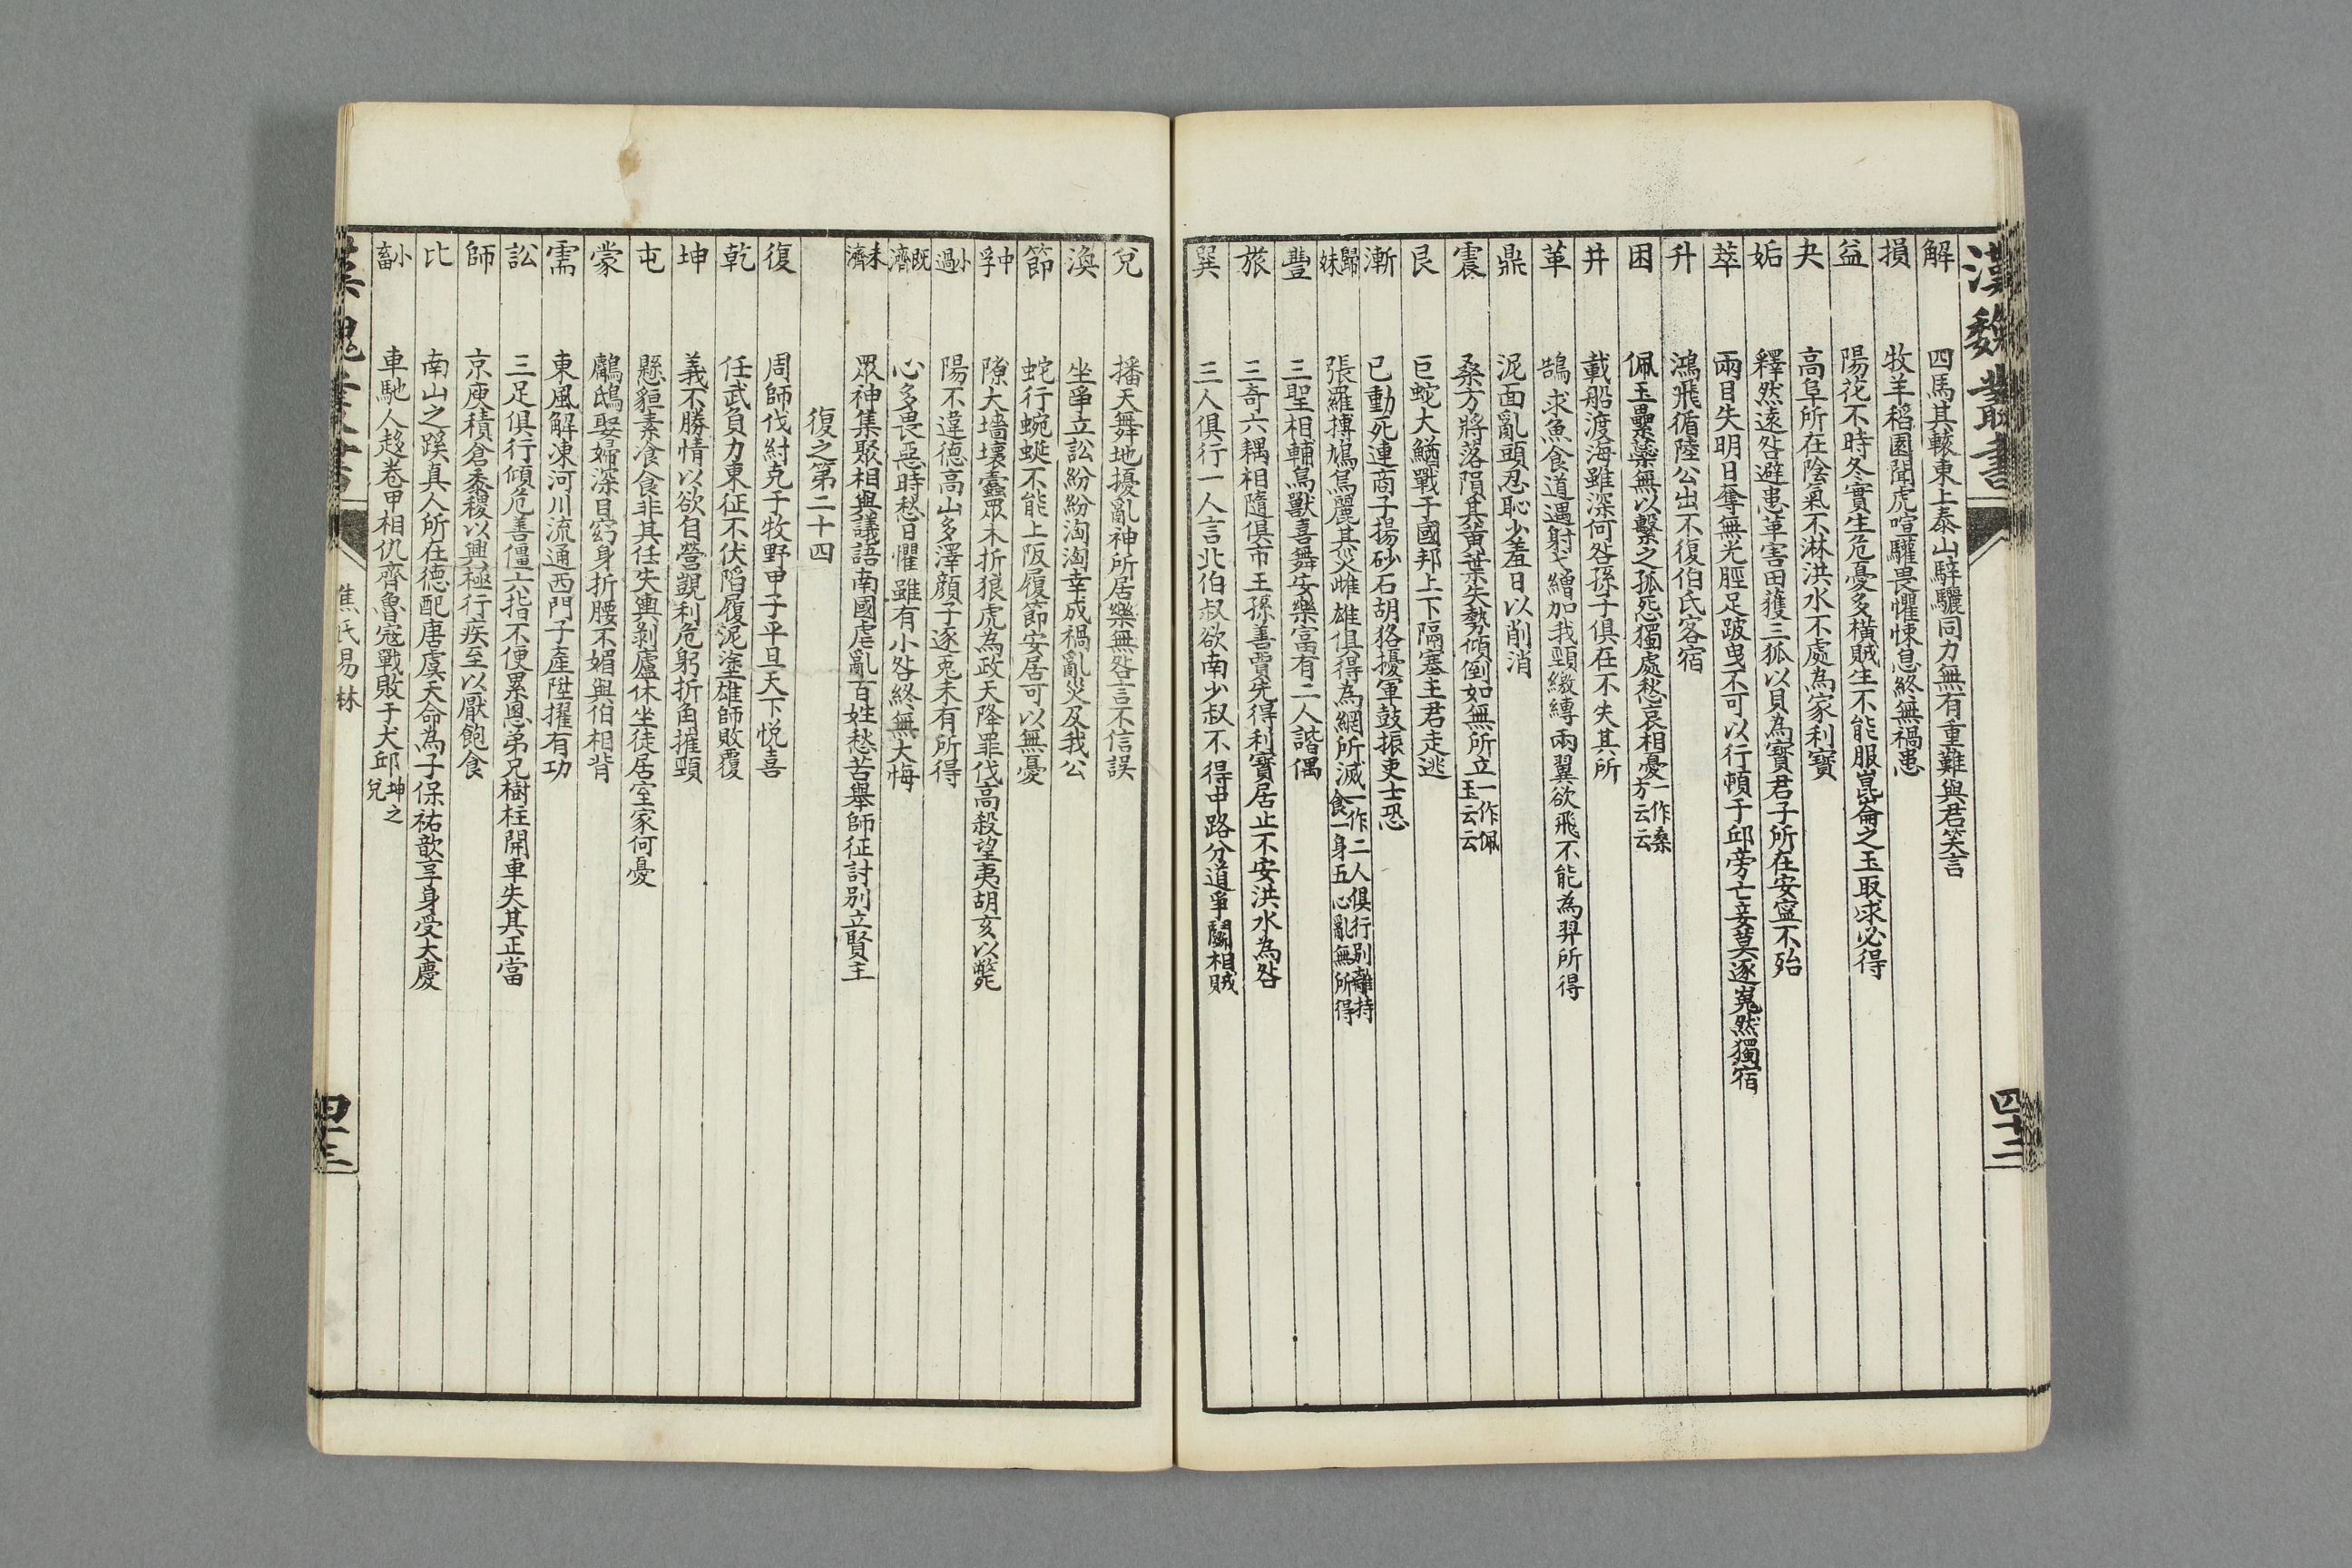 漢魏叢書
四十二
解 四馬其轅東上泰山騂驪同力無有重難與君笑言
損 牧羊稻園聞虎喧驩畏懼悚息終無禍患
益 陽花不時冬實生危憂多橫賊生不能服崑崙之玉取求必得
夬 高阜所在陰氣不淋洪水不處為家利寶
姤 釋然遠咎避患革害田獲三狐以貝為寶君子所在安寧不殆
萃 兩目失明日奪無光脛足跛曳不可以行頓于邱旁亡妾莫逐嵬然獨宿
升 鴻飛循陸公出不復伯氏客宿
困 佩玉纍蘂無以繫之孤悲獨處愁哀相憂一作桑方云云
井 載船渡海雖深何咎孫子俱在不失其所
革 鵠求魚食道遇射弋繒加我頸繳縛兩翼欲飛不能為羿所得
鼎 泥面亂頭忍恥少羞日以削消
震 桑方將落隕其黃葉失勢傾倒如無所立一作佩玉云云
艮 巨蛇大鰌戰于國邦上下隔塞主君走逃
漸 已動死連商子揚砂石胡狢擾軍鼓振吏士恐
歸妹 張羅搏鳩鳥麗其災雌雄俱得為網所滅一作二人俱行別離持食一身五心亂無所得
豐 三聖相輔鳥獸喜舞安樂富有二人諧偶
旅 三奇六耦相隨俱市王孫善賈先得利寶居止不安洪水為咎
巽 三人俱行一人言北伯叔欲南少叔不得中路分道爭鬭相賊
兌 播天舞地擾亂神所居樂無咎言不信誤
渙 坐爭立訟紛紛洶洶幸成禍亂災及我公
節 蛇行蜿蜒不能上阪履節安居可以無憂
中孚 隙大墻壞蠹眾木折狼虎為政天降罪伐高殺望夷胡亥以斃
小過 陽不違德高山多澤顏子逐兎未有所得
既濟 心多畏惡時愁日懼雖有小咎終無大悔
未濟 眾神集聚相與議語南國虐亂百姓愁苦舉師征討別立賢主
復之第二十四
復 周師伐紂克于牧野甲子平旦天下悅喜
乾 任武負力東征不伏陷履泥塗雄師敗覆
坤 義不勝情以欲自營覬利危躬折角摧頸
屯 懸貆素飡食非其任失輿剥廬休坐徒居室家何憂
蒙 鸕鴟娶婦深目窈身折腰不媚與伯相背
需 東風解凍河川流通西門子產陞擢有功
訟 三足俱行傾危善僵六指不便累恩弟兄樹柱閞車失其正當
師 京庾積倉黍稷以興極行疾至以厭飽食
比 南山之蹊真人所在德配唐虞天命為子保祐歆享身受大慶
小畜 車馳人趍卷甲相仇齊魯寇戰敗于犬邱坤之兌
焦氏易林
四十三